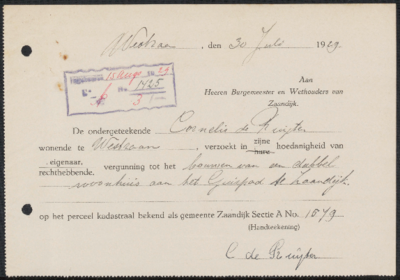 Westzaan, den 30 Juli 1929.
Aan
Heeren Burgemeester en Wethouders van
Zaandijk.
Ingekomen
No. 1425
De ondergeteekende Cornelis de Ruijter
wonende te Westzaan, verzoekt in zijne hare hoedanigheid van
eigenaar, rechthebbende, vergunning tot het bouwen van en dubbel
woonhuis aan het Guispad te Zaandijk
op het perceel kadastraal bekend als gemeente Zaandijk Sectie A No. 1549
(Handteekening)
C de Ruijter